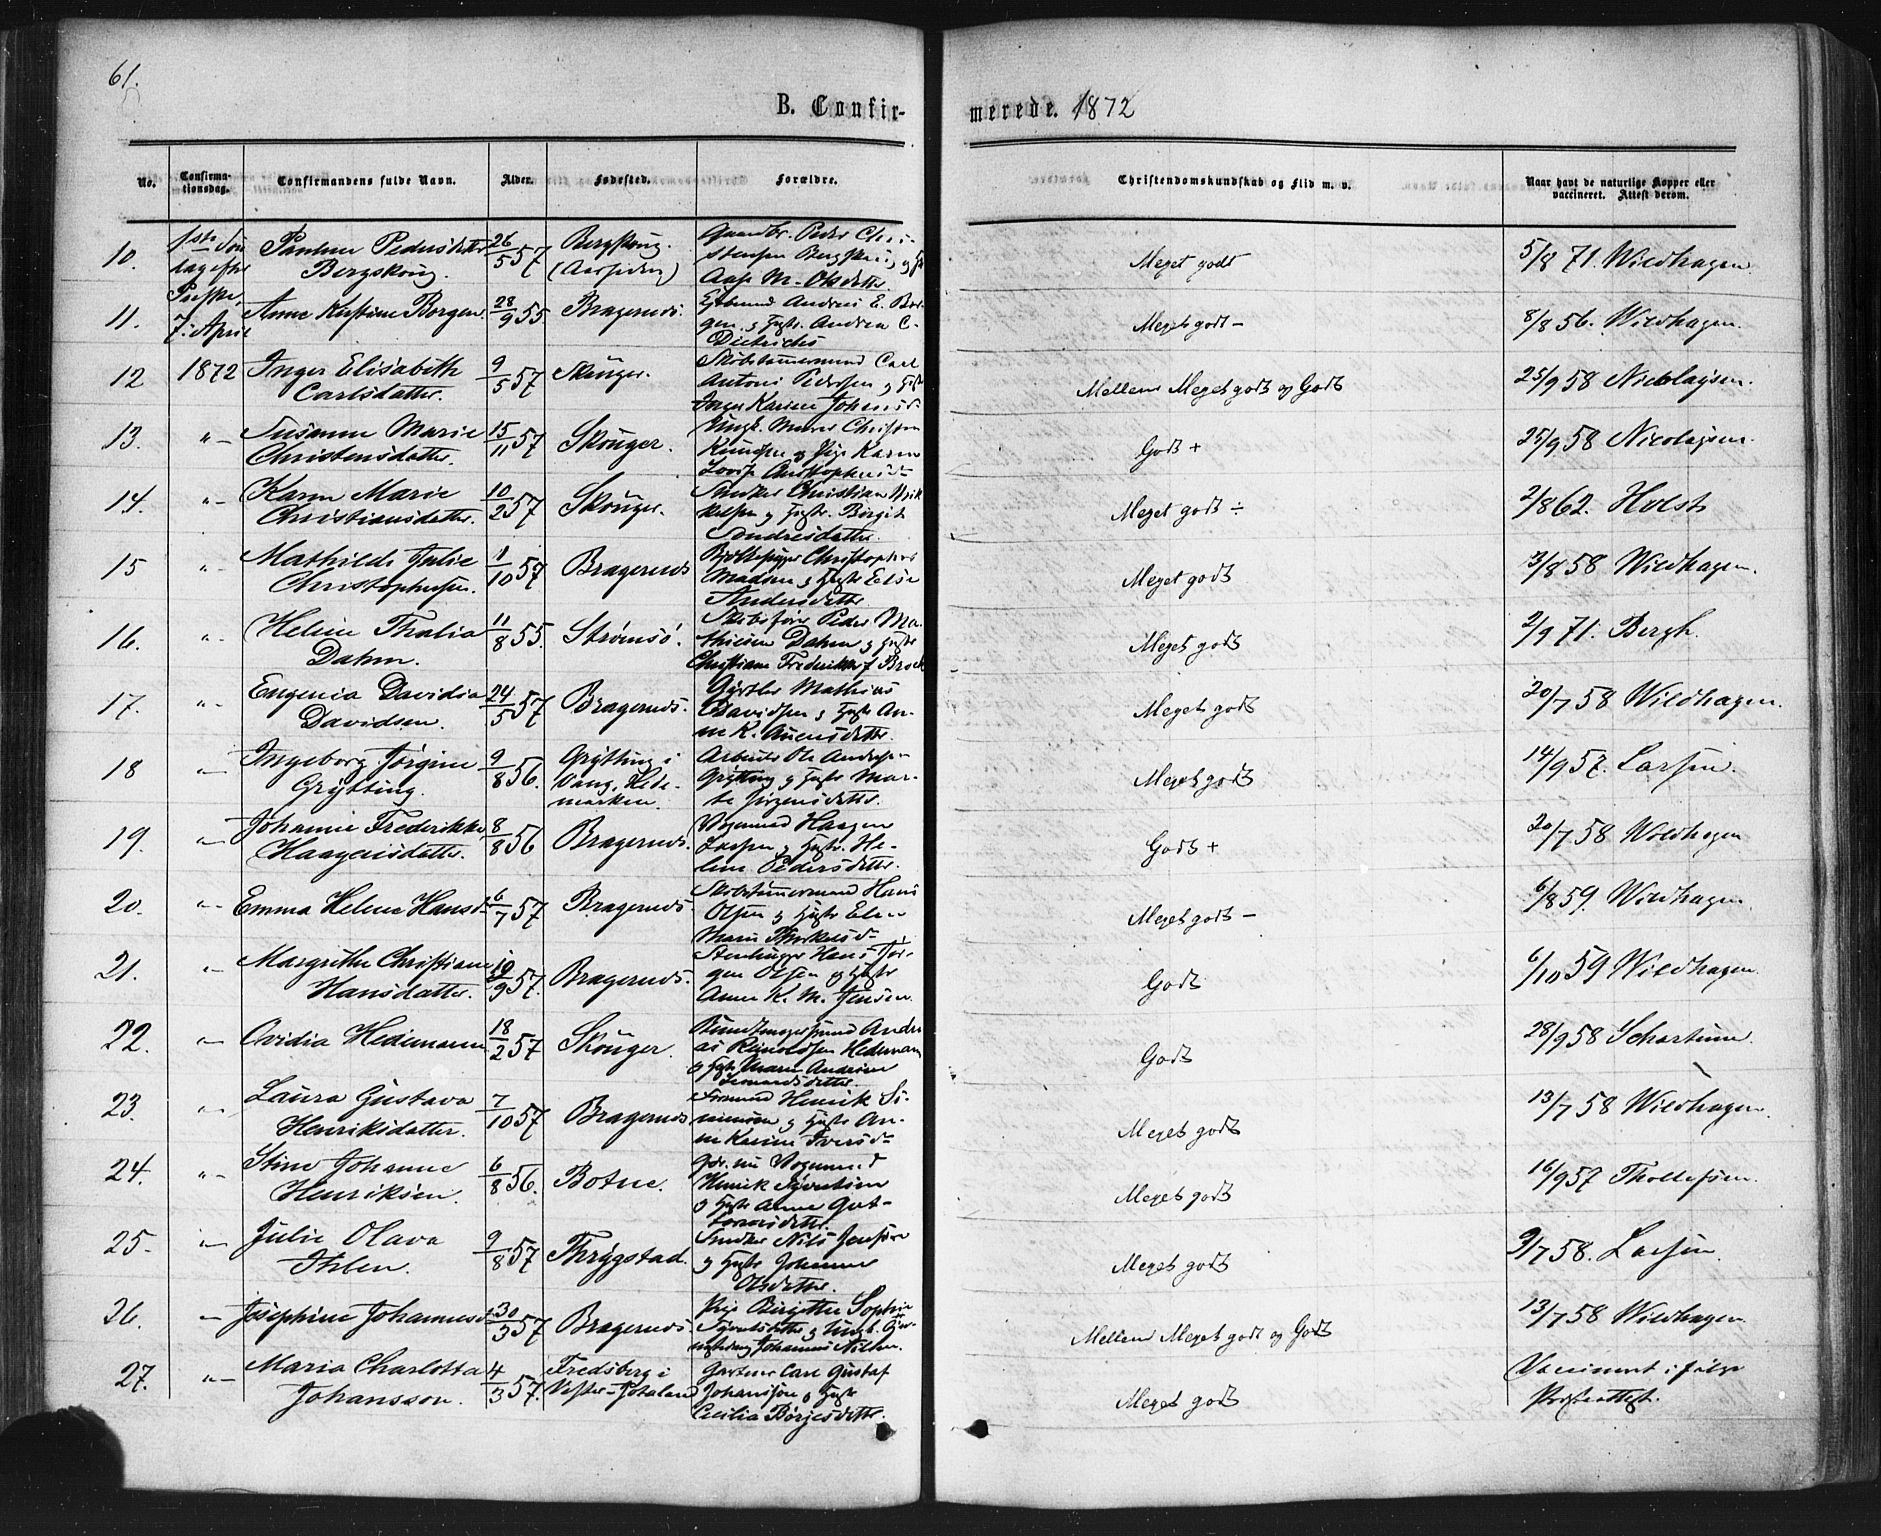 61.
B. Confir-
merede. 1872
No.
Confirma-
tionsdag.
Confirmandens fulde Navn.
Alder.
Fødested.
Forældre.
Christendomskundskab og Flid m. v.
Naar havt de naturlige Kopper eller
vaccineret. Attest derom.
10.
1ste Søn
dag efter
Pauline Pedersdatter
Bergskoug.
26/5 57
Bergskoug.
(Aarsiden)
Gaardbr. Peder Chri-
stensen Bergskoug og H
Aase M. Olsdatter
Meget godt
5/8 71. Wildhagen.
11.
Paaske,
7. April
Anne Kirstine Borgen.
28/9 55
Bragernes.
Andreas E. Bor-
gen. og Hustr. Andrea C.
Dietrichs
Meget godt -
8/8 56. Wildhagen.
12
1872
Inger Elisabeth
Carlsdatter.
9/5 57
Skouger.
Skibstømmermand Carl
Anton Pedersen og Hust
Inger Karine Johansd.
Mellem Meget godt og Godt
25/9 58 Nicolaysen.
13.
"-
Susanne Marie
Christensdatter.
15/11 57
Skouger.
Ungk. Murer Christen
Knudsen og Pige Karen
Lovise
Godt +
25/9 58 Nicolaysen.
14.
"-
Karen Marie
Christiansdatter.
10/2 57
Skouger.
Snedker Christian
og Hustr. Borgit
Sondresdatter.
Meget godt ÷
2/8 62. Holst
15
"-
Mathilde Julie
Christophersen.
1/10 57
Bragernes
Christopher
Madsen og Hustr Else
Andersdatter.
Meget godt
3/8 58 Wildhagen.
16.
"-
Helene Thalia
Dahm.
11/8 55.
Strømsø.
Skibsfører Peder Ma-
thiesen Dahm og Hustr
Christiane Frederikke f Brock
Meget godt
2/9 71. Bergh.
17.
"-
Eugenia Davidia
Davidsen.
24/5 57
Bragernes.
Gjørtler Mathias
Davidsen og Hustr An-
ne K. Auensdatter.
Meget godt
20/7 58 Wildhagen.
18
"-
Ingeborg Jørgine
Grytting.
9/8 56.
Grytting i
Vang, Hede-
marken.
Arbeider Ole Andersen
Grytting og Hustr Mar-
te Jørgensdatter.
Meget godt
14/9 57. Larsen.
19.
"-
Johanne Frederikke
Haagensdatter.
8/8 56
Bragernes.
Vognmand Haagen
Larsen og Hustr. He-
lene Pedersdatter.
Godt +
20/7 58 Wildhagen
20.
"-
Emma Helene Hansd.
6/7 57
Bragernes.
Skibstømmermand Hans
Olsen og Hustr Elen
Marie Thorkelsd.
Meget godt -
6/8 59. Wildhagen
21.
"-
Margrethe Christiane
Hansdatter.
10/9 57.
Bragernes.
Stenhugger Hans Jør-
gen Olsen og Hustr
Anne K. M. Jensen.
Godt
6/10 59 Wildhagen.
22.
"-
Ovidia Hedemann
18/2 57
Skouger.
Buntmagersvend Andre
as Reinoldsen Hedemann
og Hustr Maren Andrine
Leonardsdatter.
Godt
28/9 58 Schartum.
23.
"-
Laura Gustava
Henriksdatter.
7/10 57
Bragernes.
Sømand Henrik Si-
monsen og Hustr An-
ne Karine Iversd.
Meget godt
13/7 58 Wildhagen.
24.
"-
Stine Johanne
Henriksen.
6/8 56.
Botne.
Gdr. nu Vognmand
Henrik Syvertsen
og Hustr Anne Gut-
tormsdatter.
Meget godt
16/9 57 Thollefsen.
25.
"-
Julie Olava
Ihlen.
9/8 57
Thrygstad.
Snedker Nils Jensen
og Hustr Johanne
Olsdatter.
Meget godt
9/7 58. Larsen.
26.
"-
Josephine Johannesd.
30/3 57
Bragernes.
Pige Birgitte Sophie
Syvertsdatter og Ungk.
Johannes Nilsen.
Mellem Meget godt og Godt
13/7 58 Wildhagen
27.
"-
Maria Charlotta
Johansson.
4/3 57.
Fredsberg i
Vester-Gotaland
Gartner Carl Gustaf
Johansson og Hustr
Cecilia Börjesdatter.
Meget godt
Vaccineret i følge
Præsteattest.